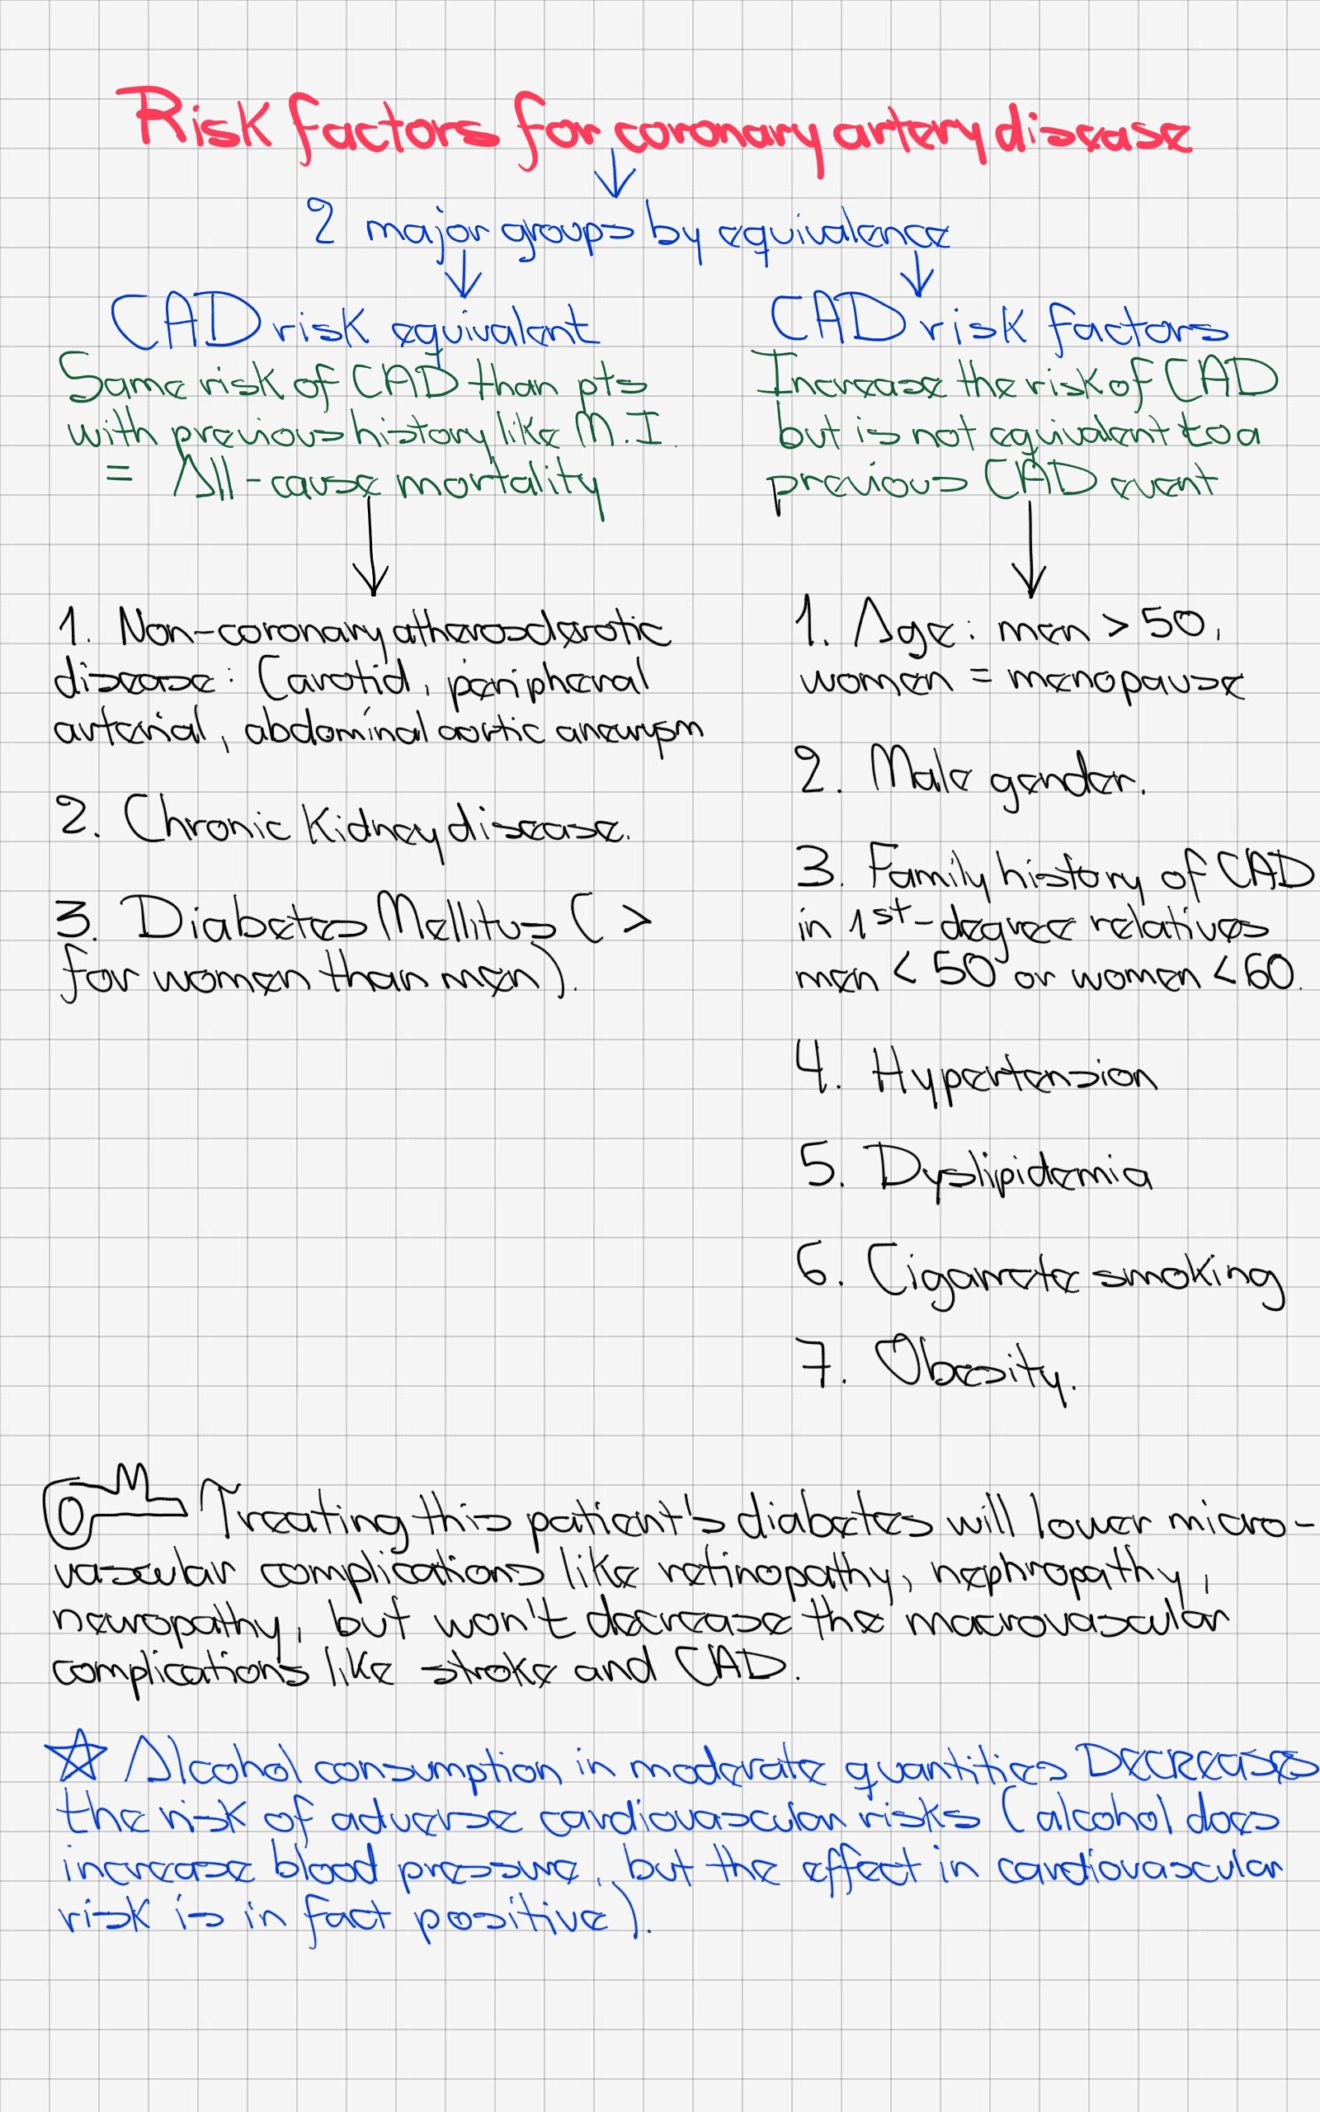 Risk factors for coronary artery disease
2 major groups by equivalence
CAD risk equivalent
Same risk of CAD than pts
with previous history like M.I.
= All-cause mortality
1. Non-coronary atherosclerotic
disease: Carotid, peripheral
arterial, abdominal aortic aneurysm
2. Chronic Kidney disease.
3. Diabetes Mellitus ( >
for women than men).
CAD risk factors
Increase the risk of CAD
but is not equivalent to a
previous CAD event
1. Age: men > 50,
women = menopause
2. Male gender.
3. Family history of CAD
in 1st-degree relatives
men < 50 or women < 60.
4. Hypertension
5. Dyslipidemia
6. Cigarrete smoking
7. Obesity.
Treating this patient's diabetes will lower micro-
vascular complications like retinopathy, nephropathy,
neuropathy, but won't decrease the macrovascular
complications like stroke and CAD.
Alcohol consumption in moderate quantities DECREASES
the risk of adverse cardiovascular risks (alcohol does
increase blood pressure, but the effect in cardiovascular
risk is in fact positive).